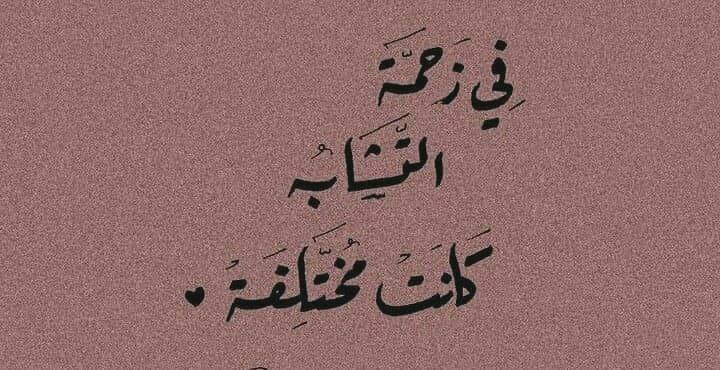 فِي زَحمَّة
التَّشَابُه
كَانَتْ مُختَّلِفَةُ ♥